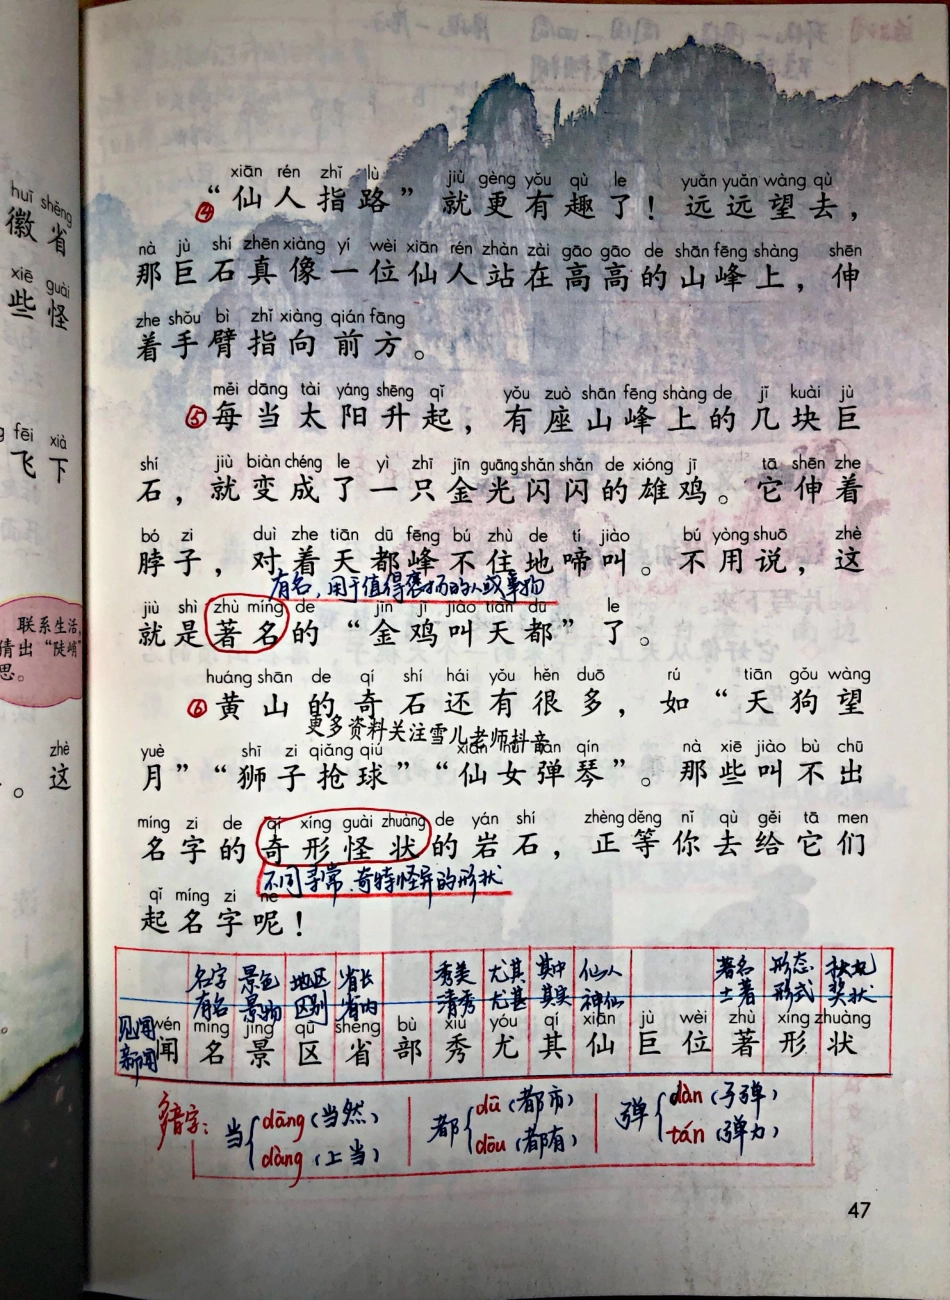 huī shěng
徽省
xiē guài
些怪
fēi xià
飞下
联系生活，
猜出“陡峭”
思。
zhè
。这
xiān rén zhǐ lù jiù gèng yǒu qù le yuǎn yuǎn wàng qù
④“仙人指路”就更有趣了！远远望去，
nà jù shí zhēn xiàng yí wèi xiān rén zhàn zài gāo gāo de shān fēng shàng shēn
那巨石真像一位仙人站在高高的山峰上，伸
zhe shǒu bì zhǐ xiàng qián fāng
着手臂指向前方。
měi dāng tài yáng shēng qǐ yǒu zuò shān fēng shàng de jǐ kuài jù
⑤每当太阳升起，有座山峰上的几块巨
shí jiù biàn chéng le yì zhī jīn guāng shǎn shǎn de xióng jī tā shēn zhe
石，就变成了一只金光闪闪的雄鸡。它伸着
bó zi duì zhe tiān dū fēng bú zhù de tí jiào bú yòng shuō zhè
脖子，对着天都峰不住地啼叫。不用说，这
有名，用于值得褒扬的人或事物
jiù shì zhù míng de jīn jī jiào tiān dū le
就是著名的“金鸡叫天都”了。
huáng shān de qí shí hái yǒu hěn duō rú tiān gǒu wàng
⑥黄山的奇石还有很多，如“天狗望
更多资料关注雪儿老师抖音
yuè shī zi qiǎng qiú xiān nǚ tán qín nà xiē jiào bù chū
月”“狮子抢球”“仙女弹琴”。那些叫不出
míng zi de qí xíng guài zhuàng de yán shí zhèng děng nǐ qù gěi tā men
名字的奇形怪状的岩石，正等你去给它们
不同寻常、奇特怪异的形状
qǐ míng zi ne
起名字呢！
名字 景色 地区 省长 秀美 尤其 其中 仙人 著名 形态 状况
有名 景物 区别 省内 清秀 尤甚 其实 神仙 土著 形式 奖状
见闻 wén míng jǐng qū shěng bù xiù yóu qí xiān jù wèi zhù xíng zhuàng
新闻 闻名景区省部秀尤其仙巨位著形状
多音字：当 dāng（当然） 都 dū（都市） 弹 dàn（子弹）
dàng（上当） dōu（都有） tán（弹力）
47